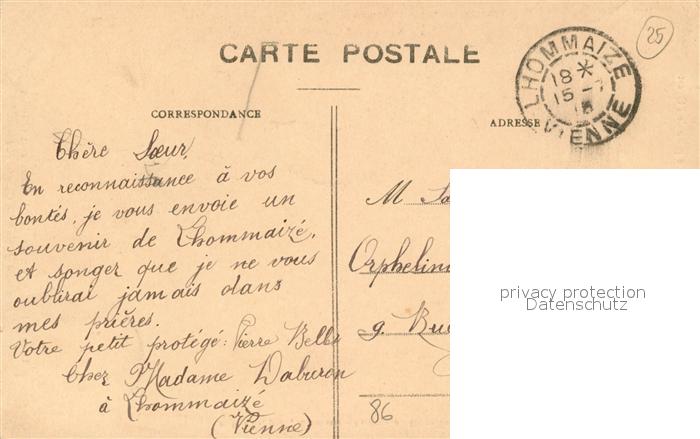 25
CARTE POSTALE
LHOMMAIZE
18 *
15 -
VIENNE
CORRESPONDANCE
ADRESSE
Chère Sœur,
En reconnaissance à vos
bontés, je vous envoie un
souvenir de Lhommaizé,
et songer que je ne vous
oublirai jamais dans
mes prières.
Votre petit protégé: Pierre
Chez Madame
à Lhommaizé
(Vienne)
M
Orphelin
9. Rue
86
privacy protection
Datenschutz